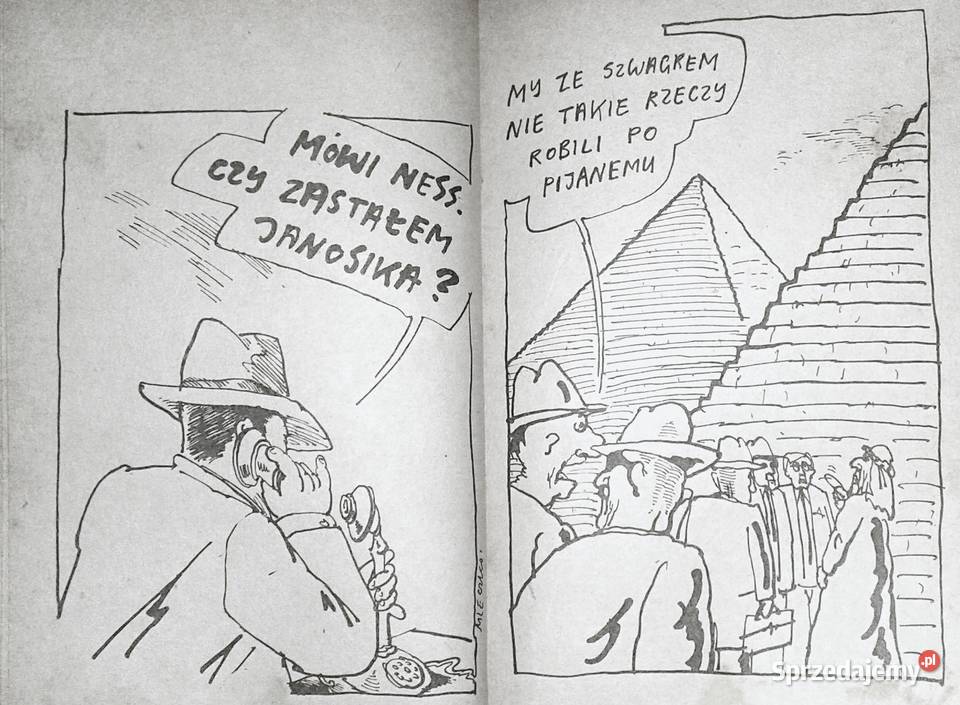 MÓWI NESS.
CZY ZASTAŁEM
JANOSIKA?
MLECZKO.
MY ZE SZWAGREM
NIE TAKIE RZECZY
ROBILI PO
PIJANEMU
Sprzedajemy.pl